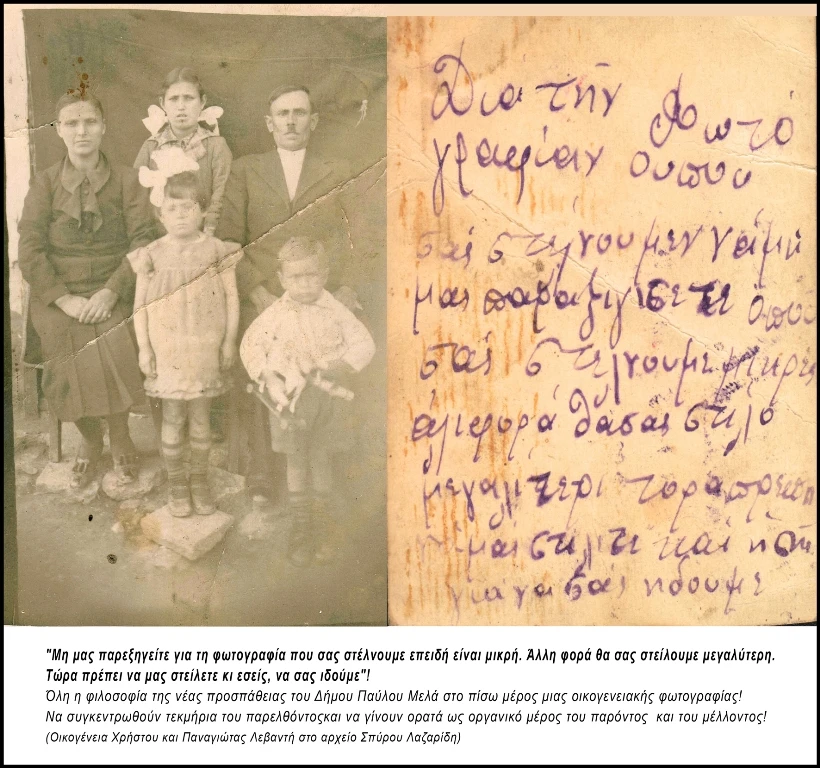 Δια την φωτο
γραφίαν ουπου
σας στηγνουμεν ναμη
μας παραξιγισετε όπου
σας στεγνουμε μικρες
άλιφορά θασας στιλο
μεγαλιτερι τοραπρεπι
μας στιλιτε και ησης
για να σας ηδουμε
"Μη μας παρεξηγείτε για τη φωτογραφία που σας στέλνουμε επειδή είναι μικρή. Άλλη φορά θα σας στείλουμε μεγαλύτερη.
Τώρα πρέπει να μας στείλετε κι εσείς, να σας ιδούμε"!
Όλη η φιλοσοφία της νέας προσπάθειας του Δήμου Παύλου Μελά στο πίσω μέρος μιας οικογενειακής φωτογραφίας!
Να συγκεντρωθούν τεκμήρια του παρελθόντοςκαι να γίνουν ορατά ως οργανικό μέρος του παρόντος και του μέλλοντος!
(Οικογένεια Χρήστου και Παναγιώτας Λεβαντή στο αρχείο Σπύρου Λαζαρίδη)